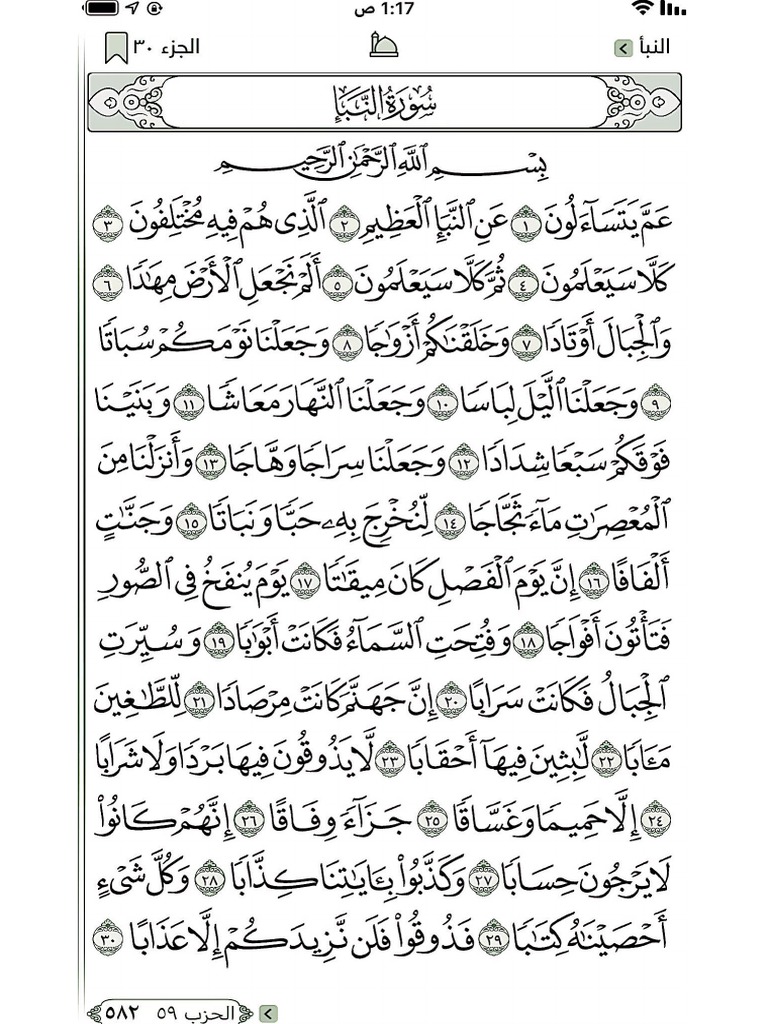 1:17 ص
النبأ
الجزء ٣٠
سُورَةُ النَّبَإِ
بِسْمِ ٱللَّهِ ٱلرَّحْمَٰنِ ٱلرَّحِيمِ
عَمَّ يَتَسَآءَلُونَ ١ عَنِ ٱلنَّبَإِ ٱلْعَظِيمِ ٢ ٱلَّذِى هُمْ فِيهِ مُخْتَلِفُونَ ٣
كَلَّا سَيَعْلَمُونَ ٤ ثُمَّ كَلَّا سَيَعْلَمُونَ ٥ أَلَمْ نَجْعَلِ ٱلْأَرْضَ مِهَٰدًا ٦
وَٱلْجِبَالَ أَوْتَادًا ٧ وَخَلَقْنَٰكُمْ أَزْوَٰجًا ٨ وَجَعَلْنَا نَوْمَكُمْ سُبَاتًا
٩ وَجَعَلْنَا ٱلَّيْلَ لِبَاسًا ١٠ وَجَعَلْنَا ٱلنَّهَارَ مَعَاشًا ١١ وَبَنَيْنَا
فَوْقَكُمْ سَبْعًا شِدَادًا ١٢ وَجَعَلْنَا سِرَاجًا وَهَّاجًا ١٣ وَأَنزَلْنَا مِنَ
ٱلْمُعْصِرَٰتِ مَآءً ثَجَّاجًا ١٤ لِّنُخْرِجَ بِهِۦ حَبًّا وَنَبَاتًا ١٥ وَجَنَّٰتٍ
أَلْفَافًا ١٦ إِنَّ يَوْمَ ٱلْفَصْلِ كَانَ مِيقَٰتًا ١٧ يَوْمَ يُنفَخُ فِى ٱلصُّورِ
فَتَأْتُونَ أَفْوَاجًا ١٨ وَفُتِحَتِ ٱلسَّمَآءُ فَكَانَتْ أَبْوَٰبًا ١٩ وَسُيِّرَتِ
ٱلْجِبَالُ فَكَانَتْ سَرَابًا ٢٠ إِنَّ جَهَنَّمَ كَانَتْ مِرْصَادًا ٢١ لِّلطَّٰغِينَ
مَـَٔابًا ٢٢ لَّٰبِثِينَ فِيهَآ أَحْقَابًا ٢٣ لَّا يَذُوقُونَ فِيهَا بَرْدًا وَلَا شَرَابًا
٢٤ إِلَّا حَمِيمًا وَغَسَّاقًا ٢٥ جَزَآءً وِفَاقًا ٢٦ إِنَّهُمْ كَانُوا۟
لَا يَرْجُونَ حِسَابًا ٢٧ وَكَذَّبُوا۟ بِـَٔايَٰتِنَا كِذَّابًا ٢٨ وَكُلَّ شَىْءٍ
أَحْصَيْنَٰهُ كِتَٰبًا ٢٩ فَذُوقُوا۟ فَلَن نَّزِيدَكُمْ إِلَّا عَذَابًا ٣٠
الحزب ٥٩ ٥٨٢